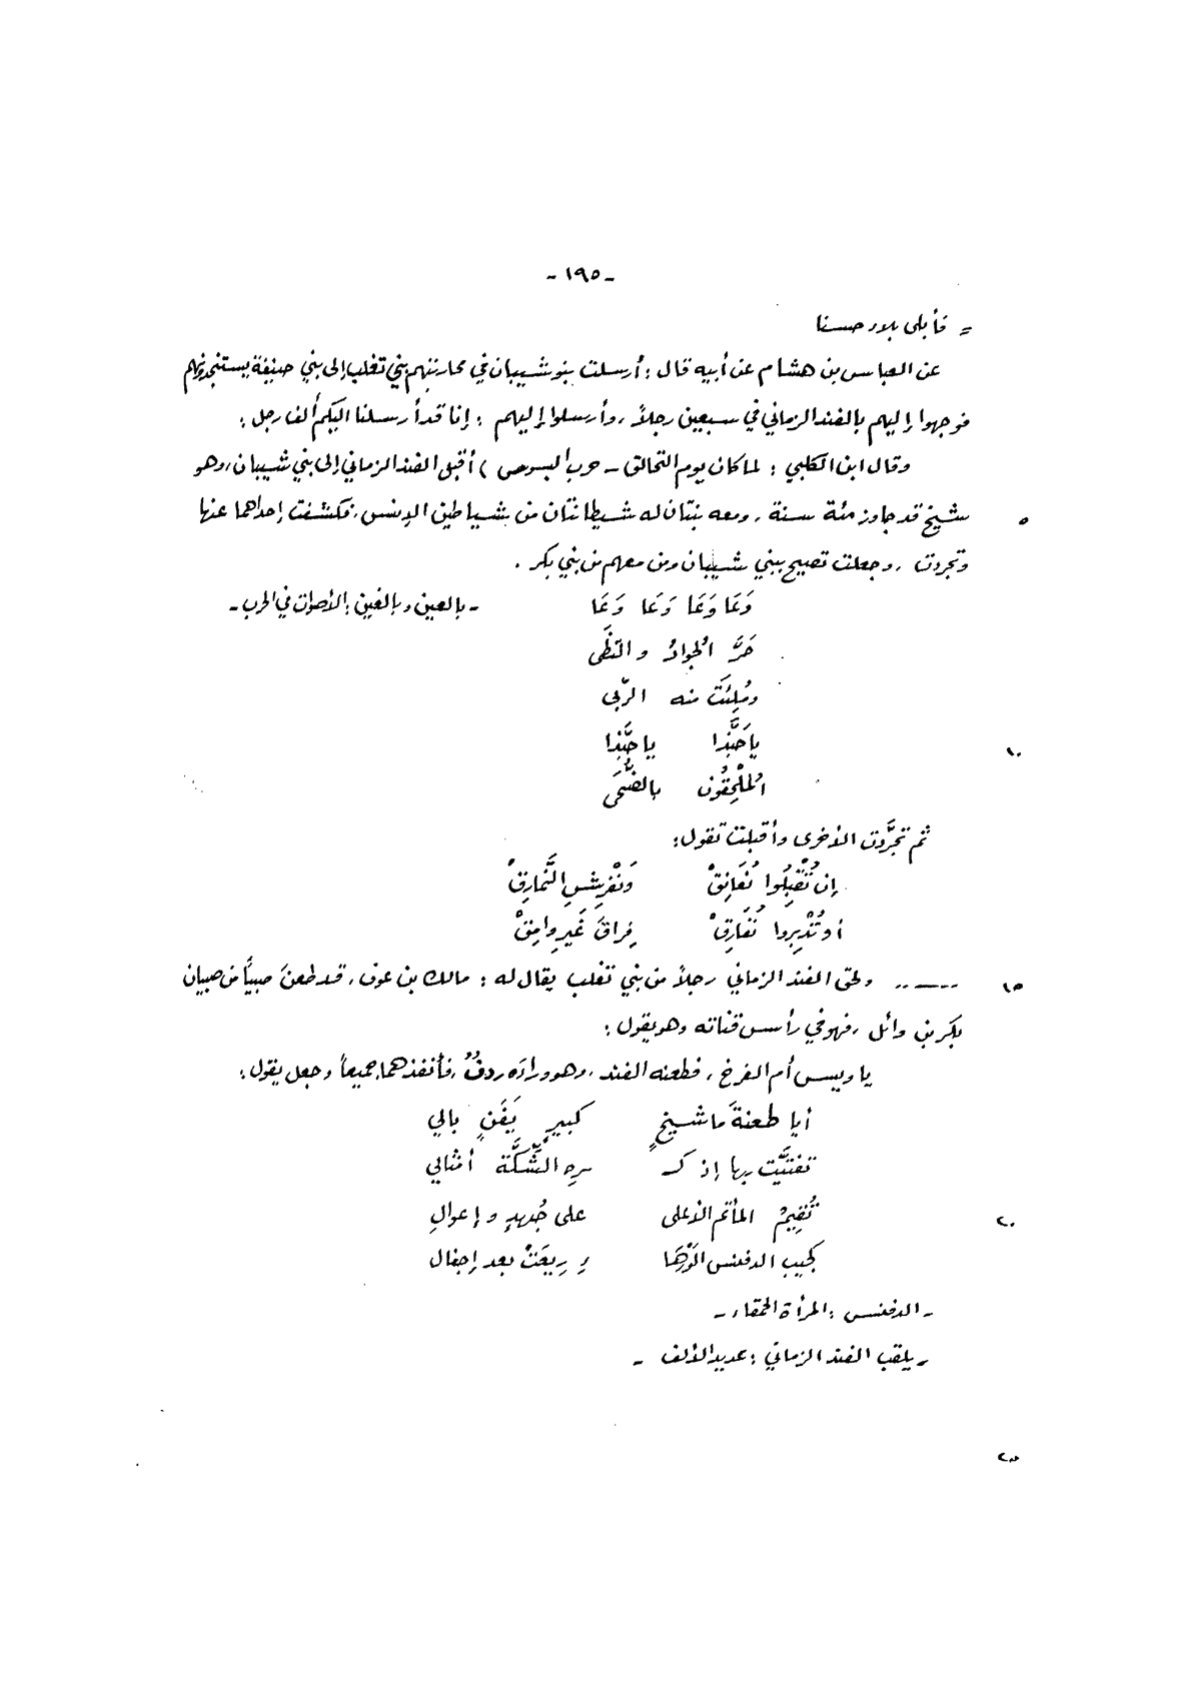 - ١٩٥ -
= فأبلى بلاء حسنا
عن العباس بن هشام عن أبيه قال : أرسلت بنو شيبان في محاربتهم بني تغلب إلى بني حنيفة يستنجدونهم
فوجهوا إليهم بالفند الزماني في سبعين رجلاً ، وأرسلوا إليهم : إنا قد أرسلنا اليكم ألف رجل :
وقال ابن الكلبي : لما كان يوم التحالق - حرب البسوس ) أقبل الفند الزماني إلى بني شيبان ، وهو
٥ شيخ قد جاوز مئة سنة ، ومعه بنتان له شيطانتان من شياطين الإنس ، فكشفت إحداهما عنها
وتجردت ، وجعلت تصيح ببني شيبان ومن معهم من بني بكر .
وَعَا وَعَا وَعَا وَعَا - بالعين وبالغين : الأصوات في الحرب -
حَرَّ الجوادُ والتظَى
ومُلِئَت منه الرّبى
١٠ يا حَبَّذا يا حبَّذا
المُلْحِقُون بالضُّحَى
ثم تجرَّدت الأخرى وأقبلت تقول :
إن تُقْبِلُوا نُعَانِقْ وَنَفْرِشِ النَّمارِقْ
أو تُدْبِروا نُفَارِقْ فِراقَ غَيرِ وامِقْ
١٥ .. ---- .. ولحق الفند الزماني رجلاً من بني تغلب يقال له : مالك بن عوف ، قد طعنَ صبيًا من صبيان
بكر بن وائل ، فهو في رأس قناته وهو يقول :
يا ويس أم الفرخ ، فطعنه الفند ، وهو وراءَه ردفٌ ، فأنفذهما جميعاً وجعل يقول :
أيا طعنةَ ما شيخٍ كبيرٍ يَفَنٍ بالي
تفتيَّت بها إذ كـ ـرِه الشِّكَّة أمثالي
٢٠ تُقِيمُ المأتم الأعلى على جُهدٍ وإعوالِ
كجيب الدفنس الوَرْهَا ءِ رِيعَتْ بعد إجفال
- الدفنس : المرأة الحمقاء -
- يلقب الفند الزماني : عديد الألف -
٢٥